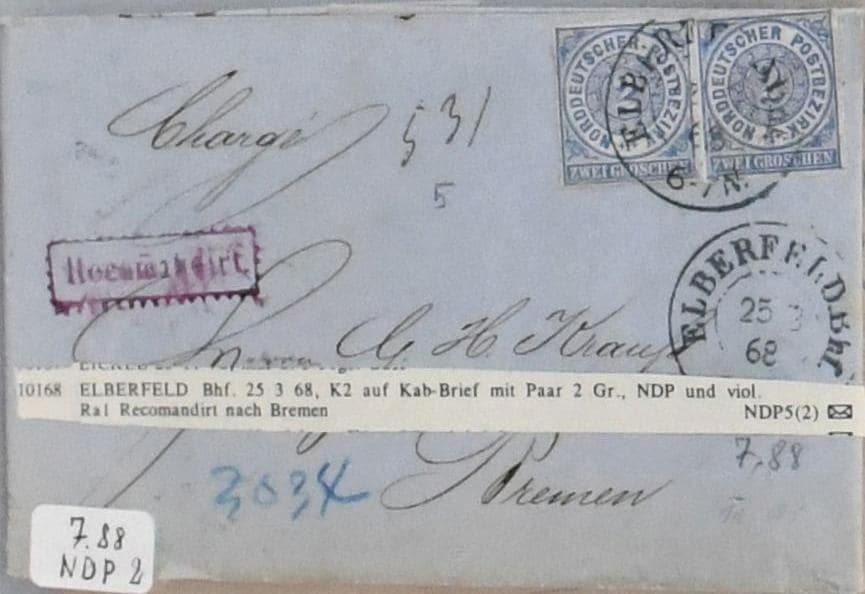 NORDDEUTSCHER POSTBEZIRK
ZWEI GROSCHEN
NORDDEUTSCHER POSTBEZIRK
ZWEI GROSCHEN
ELBERFE
68
6-7N.
Chargé
531
5
Recomandirt
ELBERFELD.Bhf.
25 3
68
G. H. Kraus
10168 ELBERFELD Bhf. 25 3 68, K2 auf Kab-Brief mit Paar 2 Gr., NDP und viol.
Ra1 Recomandirt nach Bremen NDP5(2)
7.88
Bremen
7.88
NDP 2